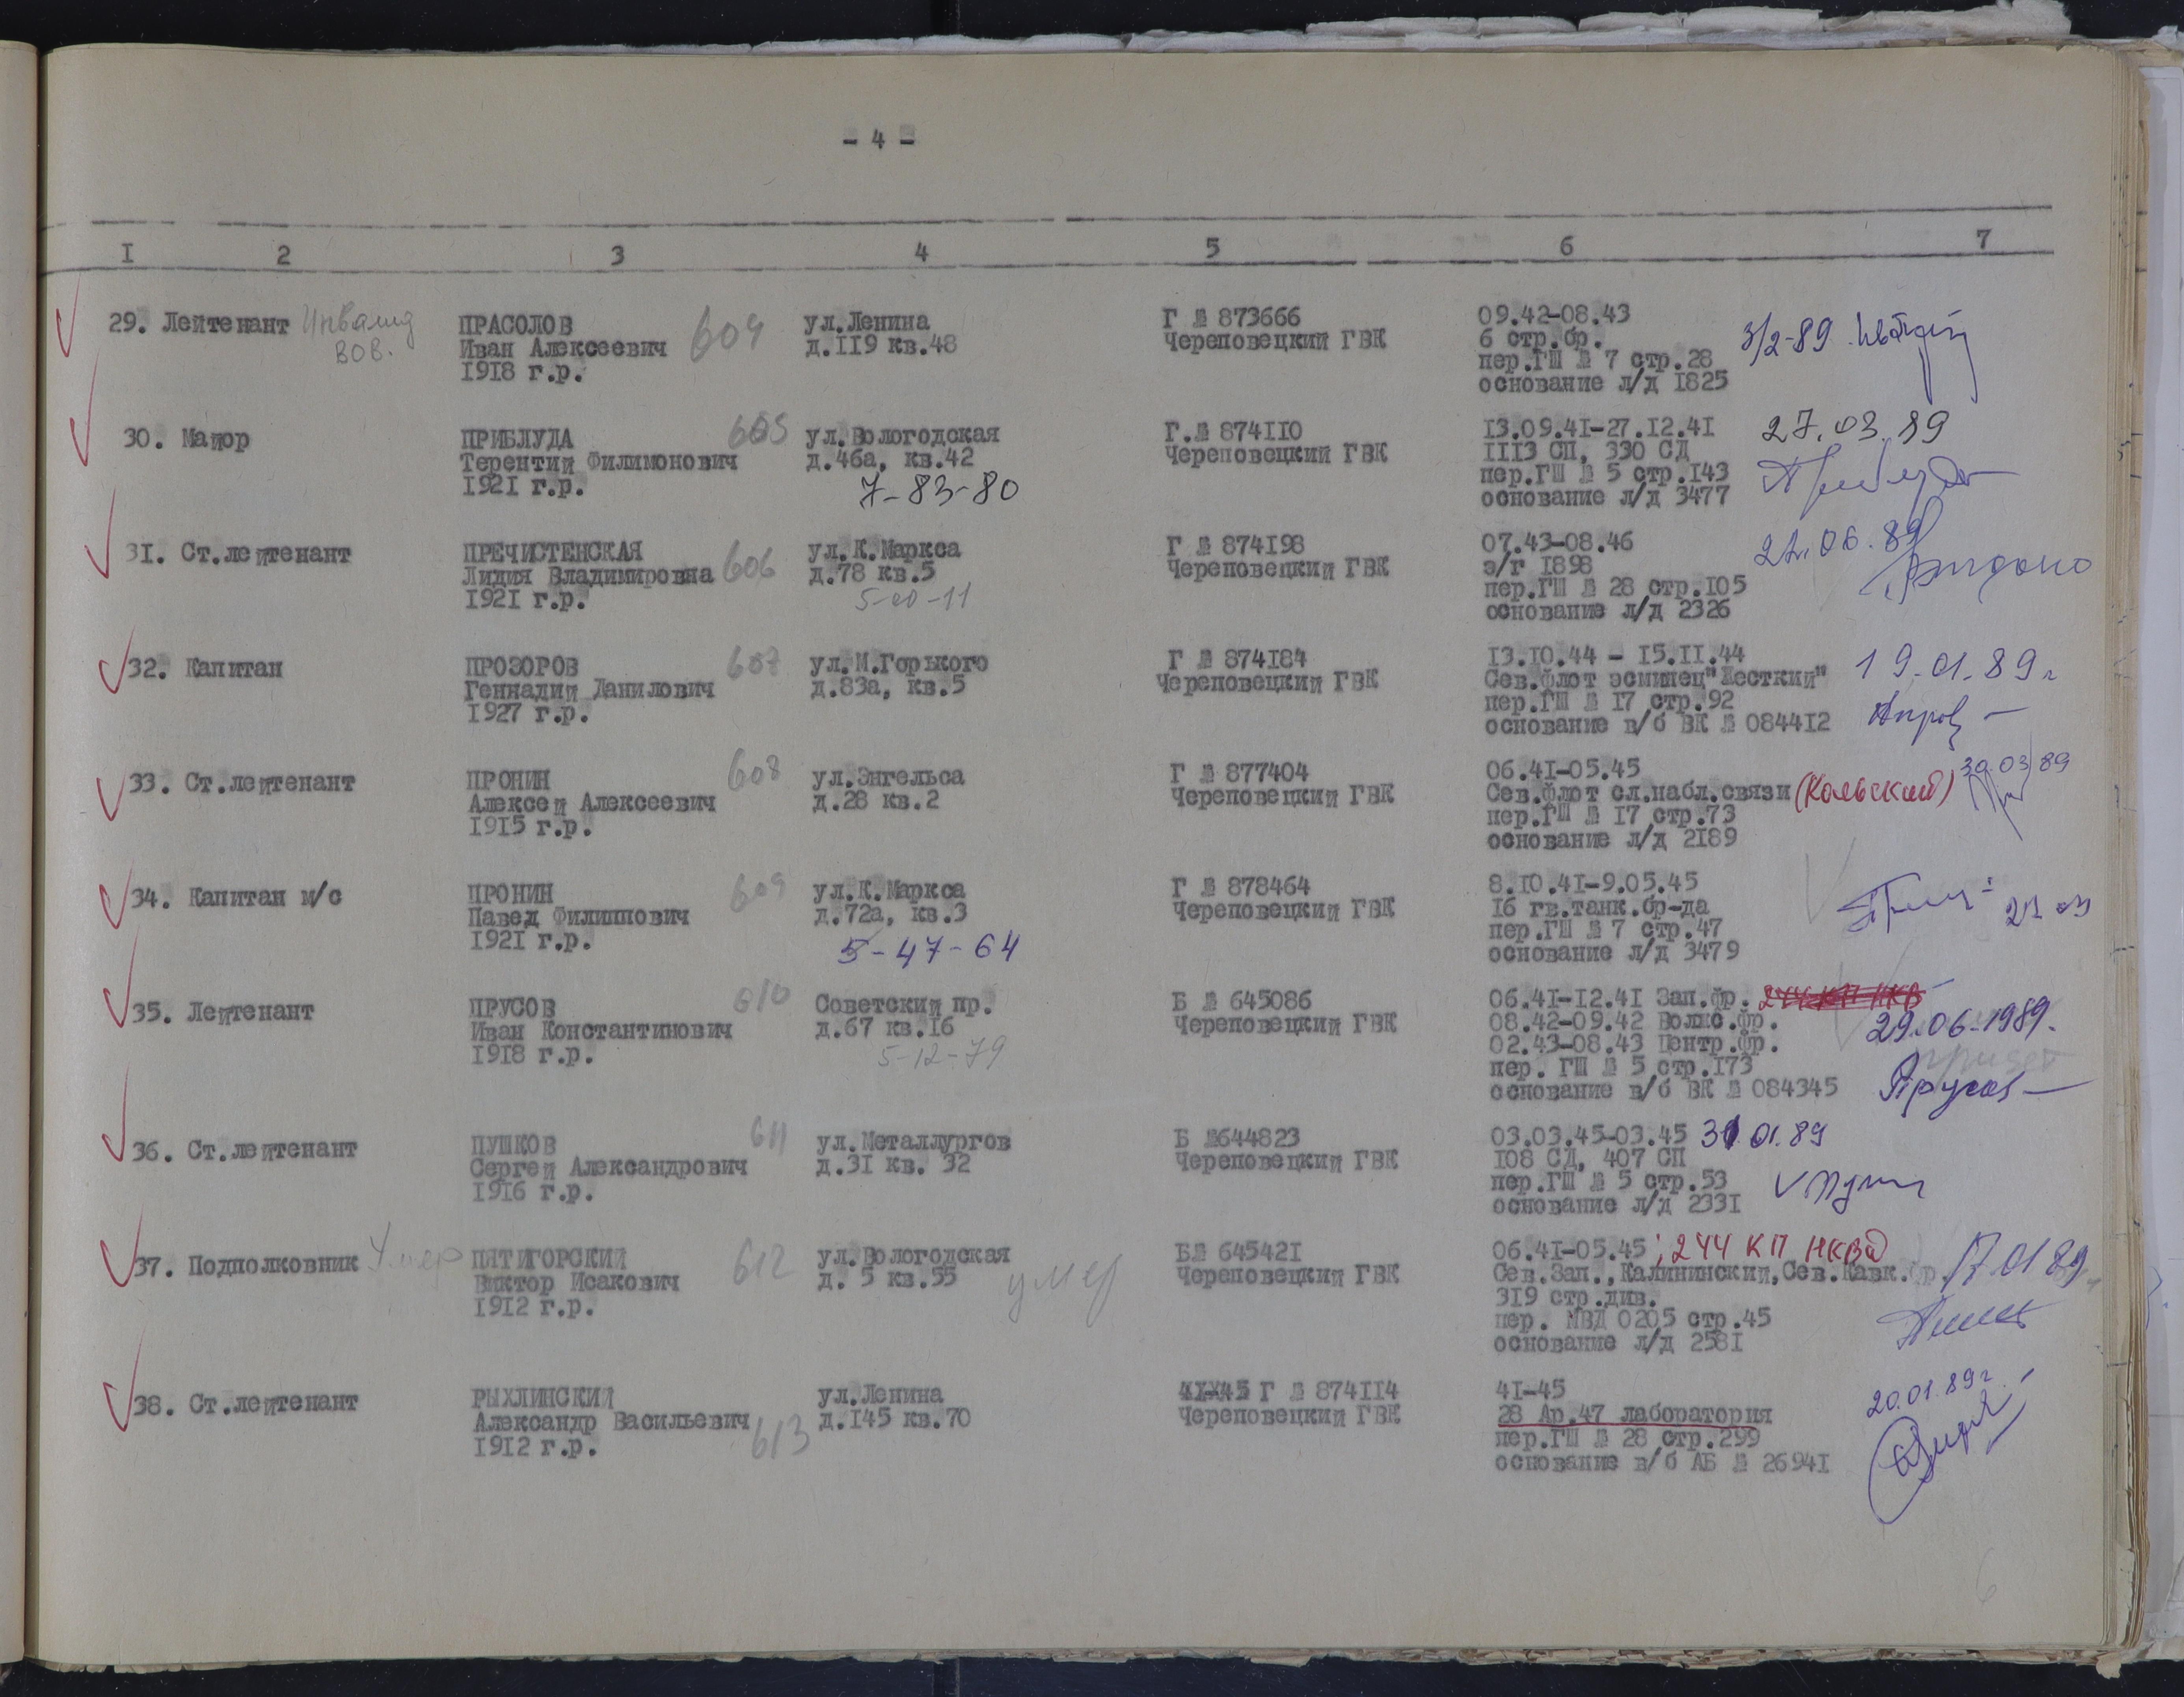 - 4 -
I 2 3 4 5 6 7
29. Лейтенант Инвалид ВОВ.
ПРАСОЛОВ 604
Иван Алексеевич
1918 г.р.
ул.Ленина
д.119 кв.48
Г № 873666
Череповецкий ГВК
09.42-08.43
6 стр.бр.
пер.ГШ № 7 стр.28
основание л/д 1825
3/2-89
30. Майор
ПРИБЛУДА 605
Терентий Филимонович
1921 г.р.
ул.Вологодская
д.46а, кв.42
7-83-80
Г.№ 874110
Череповецкий ГВК
13.09.41-27.12.41
1113 СП, 330 СД
пер.ГШ № 5 стр.143
основание л/д 3477
27.03.89
31. Ст.лейтенант
ПРЕЧИСТЕНСКАЯ
Лидия Владимировна 606
1921 г.р.
ул.К.Маркса
д.78 кв.5
5-20-11
Г № 874198
Череповецкий ГВК
07.43-08.46
э/г 1898
пер.ГШ № 28 стр.105
основание л/д 2326
06.89
32. Капитан
ПРОЗОРОВ 607
Геннадий Данилович
1927 г.р.
ул.М.Горького
д.83а, кв.5
Г № 874184
Череповецкий ГВК
13.10.44 - 15.11.44
Сев.флот эсминец"Жесткий"
пер.ГШ № 17 стр.92
основание в/б ВК № 084412
19.01.89г
33. Ст.лейтенант
ПРОНИН 608
Алексей Алексеевич
1915 г.р.
ул.Энгельса
д.28 кв.2
Г № 877404
Череповецкий ГВК
06.41-05.45
Сев.флот сл.набл.связи (Кольский)
пер.ГШ № 17 стр.73
основание л/д 2189
30.03.89
34. Капитан м/с
ПРОНИН 609
Павел Филиппович
1921 г.р.
ул.К.Маркса
д.72а, кв.3
5-47-64
Г № 878464
Череповецкий ГВК
8.10.41-9.05.45
16 гв.танк.бр-да
пер.ГШ № 7 стр.47
основание л/д 3479
35. Лейтенант
ПРУСОВ 610
Иван Константинович
1918 г.р.
Советский пр.
д.67 кв.16
5-12-79
Б № 645086
Череповецкий ГВК
06.41-12.41 Зап.фр. 244 КП НКВ
08.42-09.42 Волхс.фр.
02.43-08.43 Центр.фр.
пер. ГШ № 5 стр.173
основание в/б ВК № 084345
29.06.1989.
Прусов
36. Ст.лейтенант
ПУШКОВ 611
Сергей Александрович
1916 г.р.
ул.Металлургов
д.31 кв. 32
Б №644823
Череповецкий ГВК
03.03.45-03.45 31.01.89
108 СД, 407 СП
пер.ГШ № 5 стр.53
основание л/д 2331
37. Подполковник Умер
ПЯТИГОРСКИЙ 612
Виктор Исакович
1912 г.р.
ул.Вологодская
д. 5 кв.55 умер
Б№ 645421
Череповецкий ГВК
06.41-05.45; 244 КП НКВД
Сев.Зап.,Калининский,Сев.Кавк.фр.
319 стр.див.
пер. МВД 0205 стр.45
основание л/д 2581
17.01.89
38. Ст.лейтенант
РЫХЛИНСКИЙ
Александр Васильевич 613
1912 г.р.
ул.Ленина
д.145 кв.70
41-45 Г № 874114
Череповецкий ГВК
41-45
28 Ар.47 лаборатория
пер.ГШ № 28 стр.299
основание в/б АБ № 26941
20.01.89г.
6